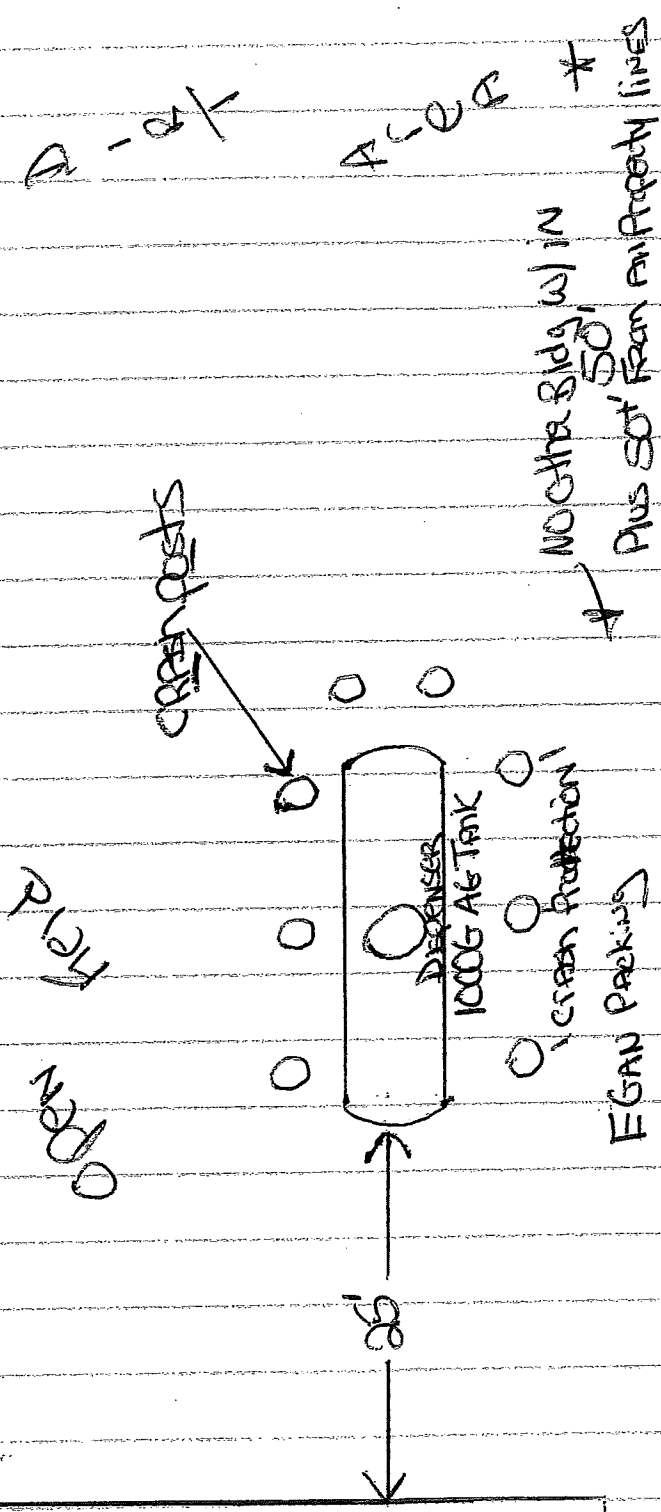 OPEN Field
Dirt Area
CRASH POSTS
25'
DISPENSER
1000G AG TANK
"CRASH Protection"
EGAN PACKING
* NO Other Bldg, W/IN 50' *
Plus 50' From All Property lines